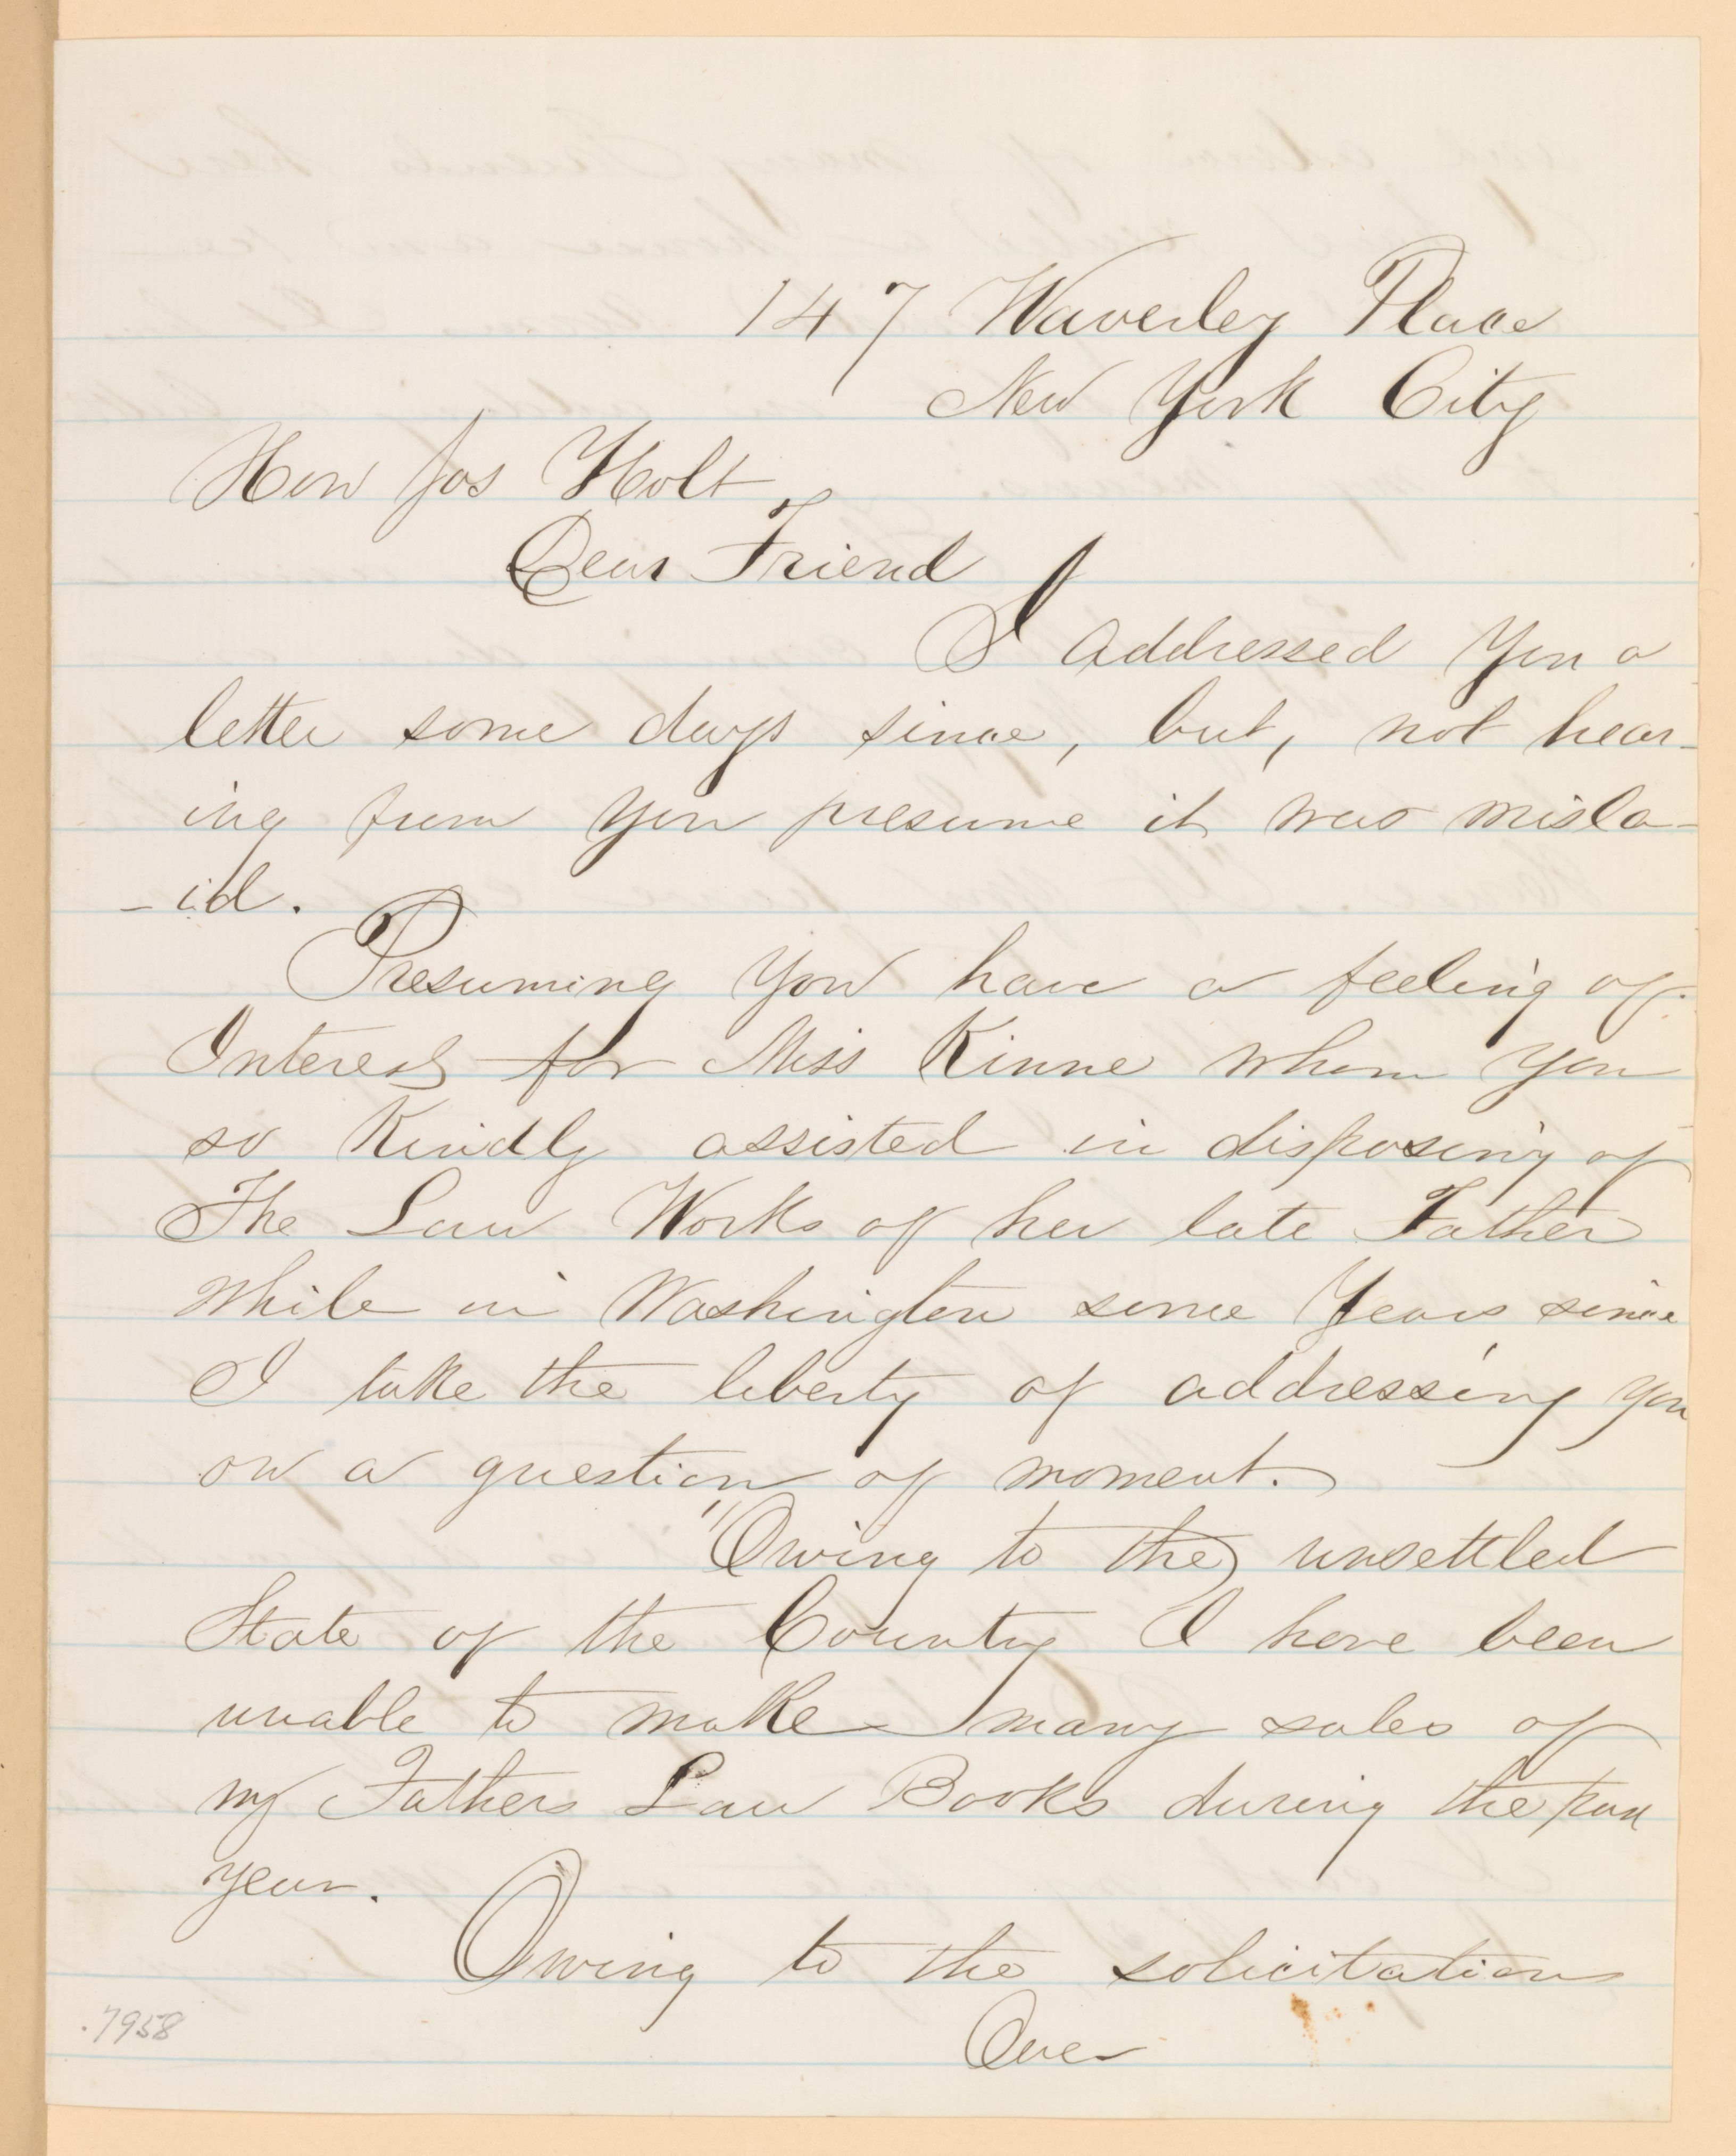 147 Waverley Place
New York City
Hon Jos Holt
Dear Friend
I addressed you a
letter some days since, but, not hear-
ing from you presume it was misla-
-id.
Presuming you have a feeling of
Interest for Miss Kinne whom you
so Kindly assisted in disposing of
The Law Works of her late Father
while in Washington some Years since
I take the liberty of addressing you
on a question of moment.
"Owing to the unsettled
State of the Country I have been
unable to make many sales of
my Fathers Law Books during the past
year.
Owing to the solicitation
Over
.7958